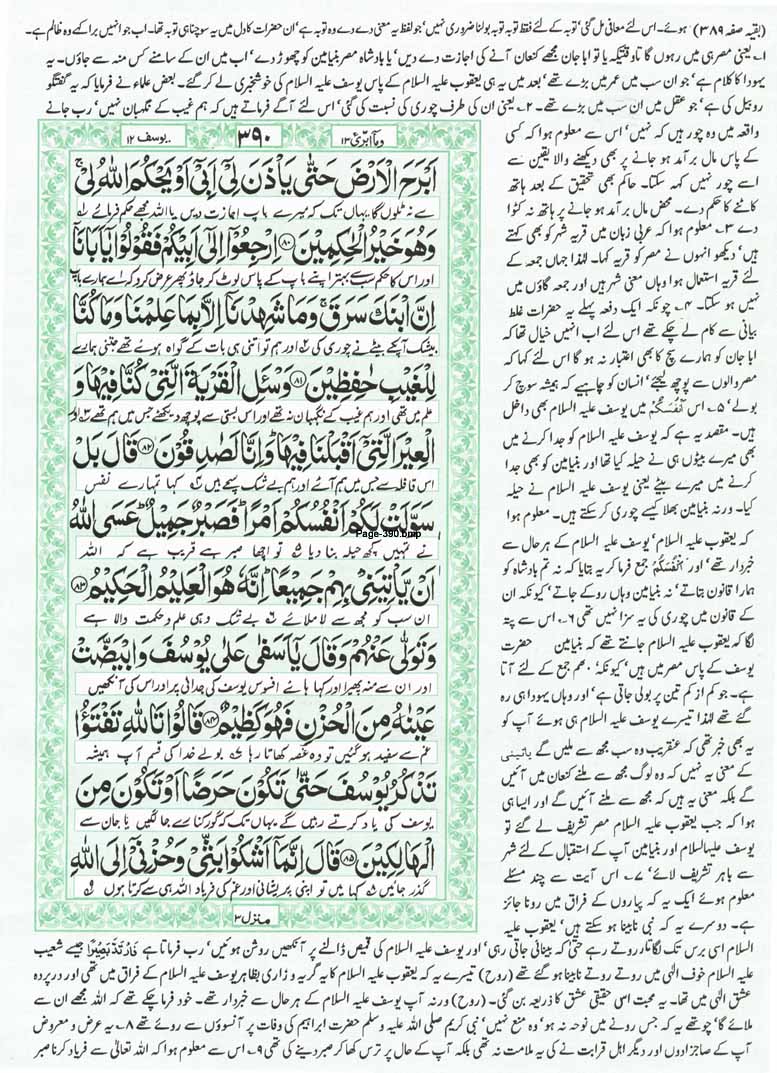 (بقیہ صفحہ ۳۸۹) ہوئے۔ اس لئے معافی مل گئی' توبہ کے لئے فقط توبہ توبہ بولنا ضروری نہیں' جو لفظ یہ معنی دے دے وہ توبہ ہے' ان حضرات کا دل میں یہ سوچنا ہی توبہ تھا۔ اب جو انہیں برا کہے وہ ظالم ہے۔
۱۔ یعنی مصر ہی میں رہوں گا تاوقتیکہ یا تو ابا جان مجھے کنعان آنے کی اجازت دے دیں' یا بادشاہ مصر بنیامین کو چھوڑ دے' اب میں ان کے سامنے کس منہ سے جاؤں۔ یہ
یہودا کا کلام ہے' جو ان سب میں عمر میں بڑے تھے' بعد میں یہ ہی یعقوب علیہ السلام کے پاس یوسف علیہ السلام کی خوشخبری لے کر گئے۔ بعض علماء نے فرمایا کہ یہ گفتگو
روبیل کی ہے' جو عقل میں ان سب میں بڑے تھے۔ ۲۔ یعنی ان کی طرف چوری کی نسبت کی گئی' اس لئے آگے فرماتے ہیں کہ ہم غیب کے نگہبان نہیں' رب جانے
واقعہ میں وہ چور ہیں کہ نہیں' اس سے معلوم ہوا کہ کسی
کے پاس مال برآمد ہو جانے پر بھی دیکھنے والا یقین سے
اسے چور نہیں کہہ سکتا۔ حاکم بھی تحقیق کے بعد ہاتھ
کاٹنے کا حکم دے۔ محض مال برآمد ہو جانے پر ہاتھ نہ کٹوا
دے ۳۔ معلوم ہوا کہ عربی زبان میں قریہ شہر کو بھی کہتے
ہیں' دیکھو انہوں نے مصر کو قریہ کہا۔ لہٰذا جہاں جمعہ کے
لئے قریہ استعمال ہوا وہاں معنی شہر ہیں اور جمعہ گاؤں میں
نہیں ہو سکتا۔ ۴۔ چونکہ ایک دفعہ پہلے یہ حضرات غلط
بیانی سے کام لے چکے تھے اس لئے اب انہیں خیال تھا کہ
ابا جان کو ہمارے سچ کا بھی اعتبار نہ ہو گا اس لئے کہا کہ
مصر والوں سے پوچھ لیجئے' انسان کو چاہیے کہ ہمیشہ سوچ کر
بولے' ۵۔ اس اَنْفُسُكُمْ میں یوسف علیہ السلام بھی داخل
ہیں۔ مقصد یہ ہے کہ یوسف علیہ السلام کو جدا کرنے میں
بھی میرے بیٹوں ہی نے حیلہ کیا تھا اور بنیامین کو بھی جدا
کرنے میں میرے بیٹے یعنی یوسف علیہ السلام نے حیلہ
کیا۔ ورنہ بنیامین بھلا کیسے چوری کر سکتے ہیں۔ معلوم ہوا
کہ یعقوب علیہ السلام' یوسف علیہ السلام کے ہر حال سے
خبردار تھے' اور اَنْفُسُكُمْ جمع فرما کر یہ بتایا کہ نہ تم بادشاہ کو
ہمارا قانون بتاتے' نہ بنیامین وہاں روکے جاتے' کیونکہ ان
کے قانون میں چوری کی یہ سزا نہیں تھی ۶۔ اس سے پتہ
لگا کہ یعقوب علیہ السلام جانتے تھے کہ بنیامین حضرت
یوسف کے پاس مصر میں ہیں' کیونکہ ھم جمع کے لئے آتا
ہے۔ جو کم از کم تین پر بولی جاتی ہے' اور وہاں یہودا ہی رہ
گئے تھے لہٰذا تیسرے یوسف علیہ السلام ہی ہوئے آپ کو
یہ بھی خبر تھی کہ عنقریب وہ سب مجھ سے ملیں گے یاتینی
کے معنی یہ نہیں کہ وہ لوگ مجھ سے ملنے کنعان میں آئیں
گے بلکہ معنی یہ ہیں کہ مجھ سے ملنے آئیں گے اور ایسا ہی
ہوا کہ جب یعقوب علیہ السلام مصر تشریف لے گئے تو
یوسف علیہ السلام اور بنیامین آپ کے استقبال کے لئے شہر
سے باہر تشریف لائے' ۷۔ اس آیت سے چند مسئلے
معلوم ہوئے ایک یہ کہ پیاروں کے فراق میں رونا جائز
ہے۔ دوسرے یہ کہ نبی نابینا ہو سکتے ہیں' یعقوب علیہ
یوسف ۱۲
۳۹۰
وما ابرئ ۱۳
اَبْرَحَ الْاَرْضَ حَتّٰى يَاْذَنَ لِيْٓ اَبِيْٓ اَوْ يَحْكُمَ اللّٰهُ لِيْ ۚ
سے نہ ٹلوں گا یہاں تک کہ میرے باپ اجازت دیں یا اللہ مجھے حکم فرمائے ۱
وَهُوَ خَيْرُ الْحٰكِمِيْنَ ۸۰ اِرْجِعُوْٓا اِلٰٓى اَبِيْكُمْ فَقُوْلُوْا يٰٓاَبَانَآ
اور اس کا حکم سب سے بہتر اپنے باپ کے پاس لوٹ کر جاؤ پھر عرض کرو کہ اے ہمارے باپ
اِنَّ ابْنَكَ سَرَقَ ۚ وَمَا شَهِدْنَآ اِلَّا بِمَا عَلِمْنَا وَمَا كُنَّا
بیشک آپ کے بیٹے نے چوری کی ۲ اور ہم تو اتنی ہی بات کے گواہ ہوئے تھے جتنی ہمارے
لِلْغَيْبِ حٰفِظِيْنَ ۸۱ وَسْئَلِ الْقَرْيَةَ الَّتِيْ كُنَّا فِيْهَا وَ
علم میں تھی اور ہم غیب کے نگہبان نہ تھے اور اس بستی سے پوچھ دیکھئے جس میں ہم تھے ۳ اور
الْعِيْرَ الَّتِيْٓ اَقْبَلْنَا فِيْهَا ؕ وَاِنَّا لَصٰدِقُوْنَ ۸۲ قَالَ بَلْ
اس قافلہ سے جس میں ہم آئے اور ہم بے شک سچے ہیں ۴ کہا تمہارے نفس
سَوَّلَتْ لَكُمْ اَنْفُسُكُمْ اَمْرًا ؕ فَصَبْرٌ جَمِيْلٌ ؕ عَسَى اللّٰهُ
Page-390.bmp
نے تمہیں کچھ حیلہ بنا دیا ۵ تو اچھا صبر ہے قریب ہے کہ اللہ
اَنْ يَّاْتِيَنِيْ بِهِمْ جَمِيْعًا ؕ اِنَّهٗ هُوَ الْعَلِيْمُ الْحَكِيْمُ ۸۳
ان سب کو مجھ سے لا ملائے ۶ بے شک وہی علم و حکمت والا ہے
وَتَوَلّٰى عَنْهُمْ وَقَالَ يٰٓاَسَفٰى عَلٰى يُوْسُفَ وَابْيَضَّتْ
اور ان سے منہ پھیرا اور کہا ہائے افسوس یوسف کی جدائی پر اور اس کی آنکھیں
عَيْنٰهُ مِنَ الْحُزْنِ فَهُوَ كَظِيْمٌ ۸۴ قَالُوْا تَاللّٰهِ تَفْتَؤُا
غم سے سفید ہو گئیں تو وہ غصہ کھاتا رہا ۷ بولے خدا کی قسم آپ ہمیشہ
تَذْكُرُ يُوْسُفَ حَتّٰى تَكُوْنَ حَرَضًا اَوْ تَكُوْنَ مِنَ
یوسف کی یاد کرتے رہیں گے یہاں تک کہ گور کنارے جا لگیں یا جان سے
الْهَالِكِيْنَ ۸۵ قَالَ اِنَّمَآ اَشْكُوْا بَثِّيْ وَحُزْنِيْٓ اِلَى اللّٰهِ
گذر جائیں ۸ کہا میں تو اپنی پریشانی اور غم کی فریاد اللہ ہی سے کرتا ہوں ۹
منزل ۳
السلام اسی برس تک لگاتار روتے رہے حتیٰ کہ بینائی جاتی رہی' اور یوسف علیہ السلام کی قمیض ڈالنے پر آنکھیں روشن ہوئیں' رب فرماتا ہے فَارْتَدَّ بَصِيْرًا جیسے شعیب
علیہ السلام خوف الٰہی میں روتے روتے نابینا ہو گئے تھے (روح) تیسرے یہ کہ یعقوب علیہ السلام کا یہ گریہ و زاری بظاہر یوسف علیہ السلام کے فراق میں تھی اور درپردہ
عشق الٰہی میں تھا۔ یہ محبت اسی حقیقی عشق کا ذریعہ بن گئی۔ (روح) ورنہ آپ یوسف علیہ السلام کے ہر حال سے خبردار تھے۔ خود فرما چکے تھے کہ اللہ مجھے ان سے
ملائے گا' چوتھے یہ کہ جس رونے میں نوحہ نہ ہو' وہ منع نہیں' نبی کریم صلی اللہ علیہ وسلم حضرت ابراہیم کی وفات پر آنسوؤں سے روئے تھے ۸۔ یہ عرض و معروض
آپ کے صاجزادوں اور دیگر اہل قرابت نے کی یہ ملامت نہ تھی بلکہ آپ کے حال پر ترس کھا کر صبر دینے کی تھی ۹۔ اس سے معلوم ہوا کہ اللہ تعالیٰ سے فریاد کرنا صبر